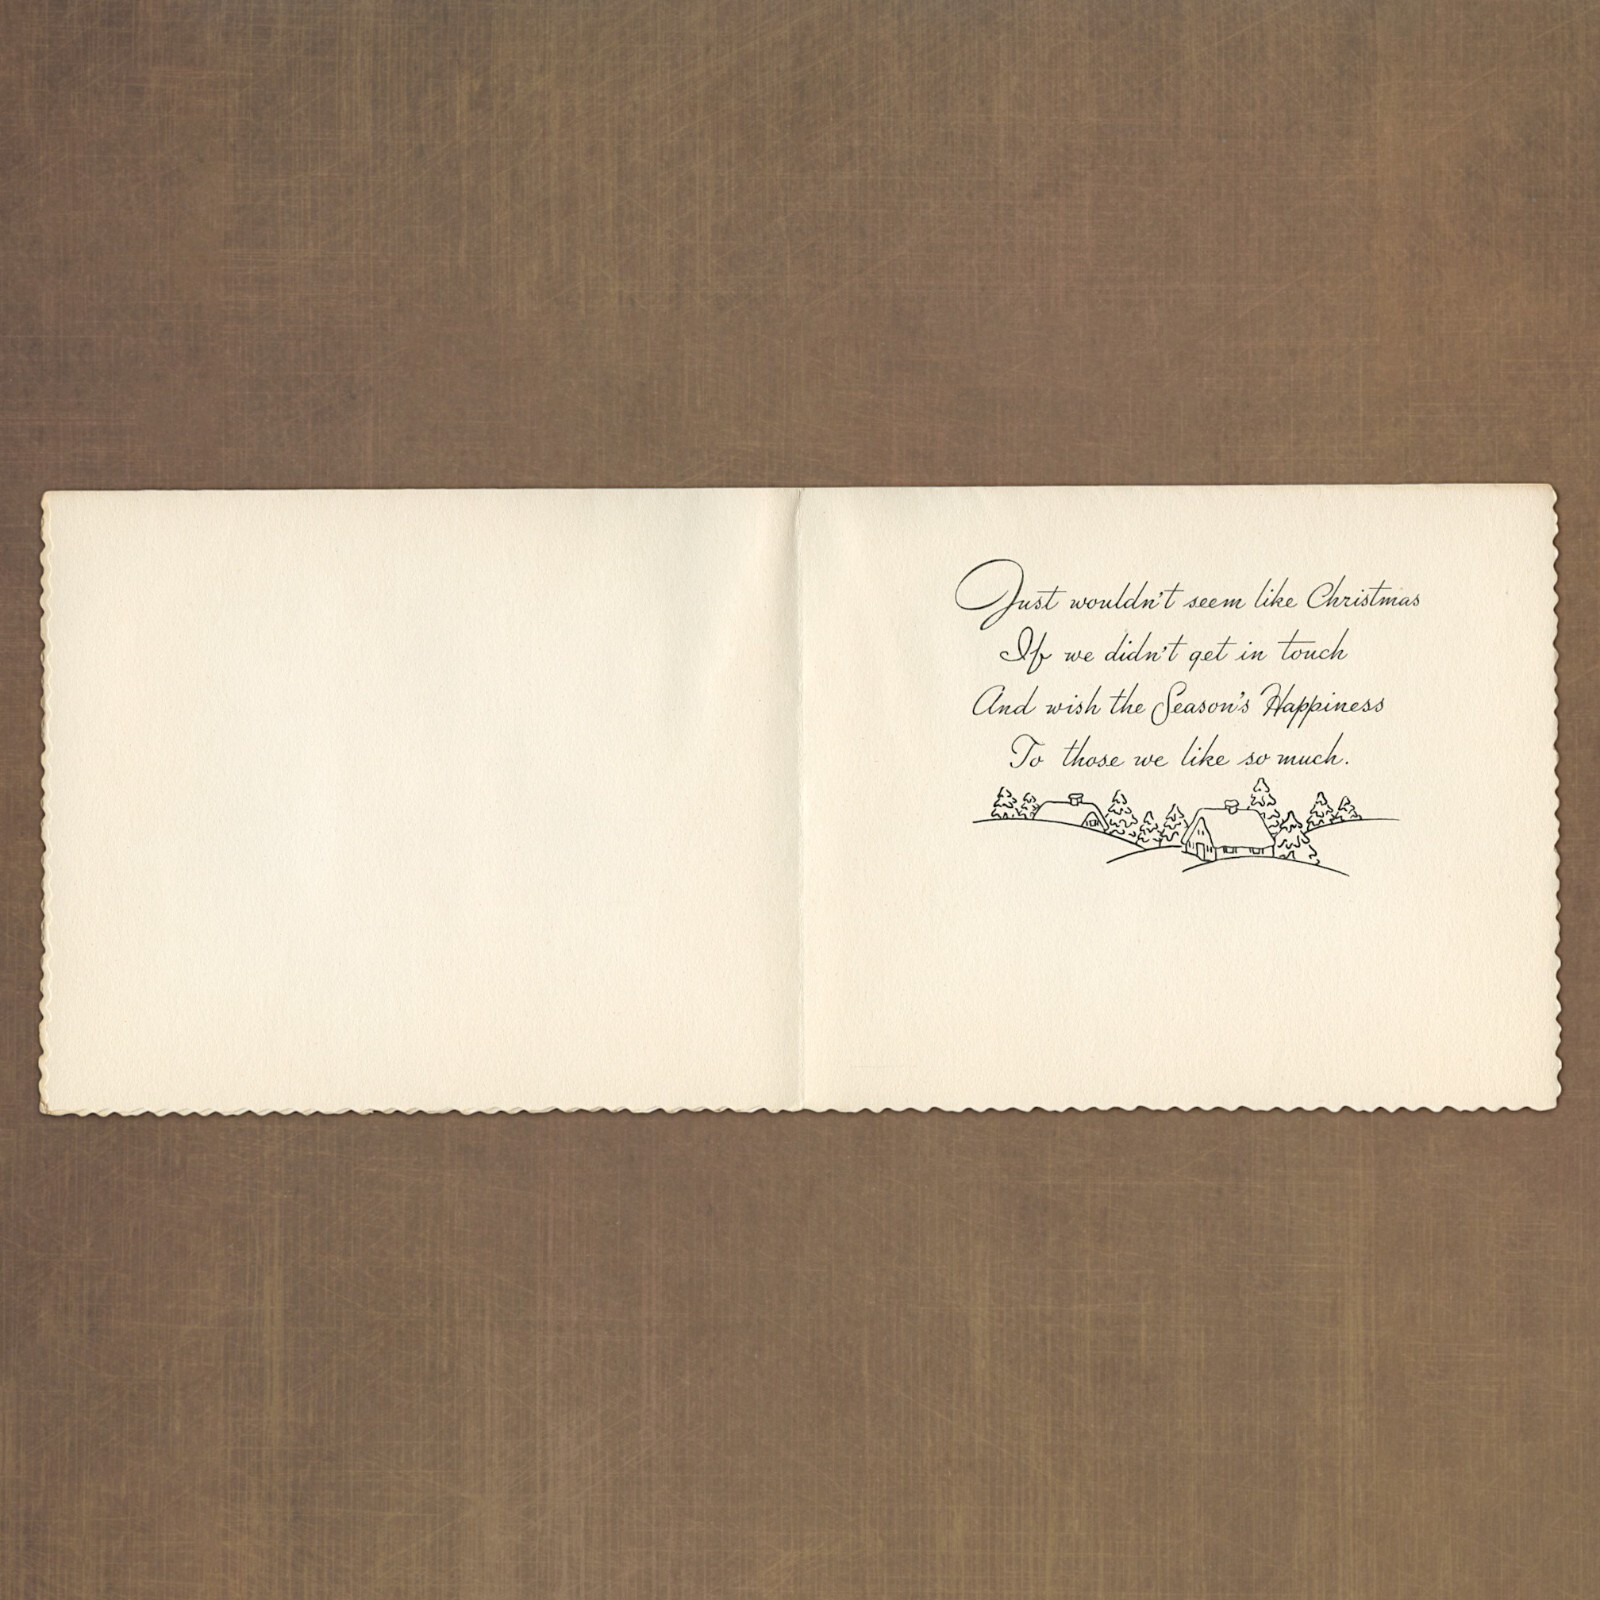 Just wouldn't seem like Christmas
If we didn't get in touch
And wish the Season's Happiness
To those we like so much.